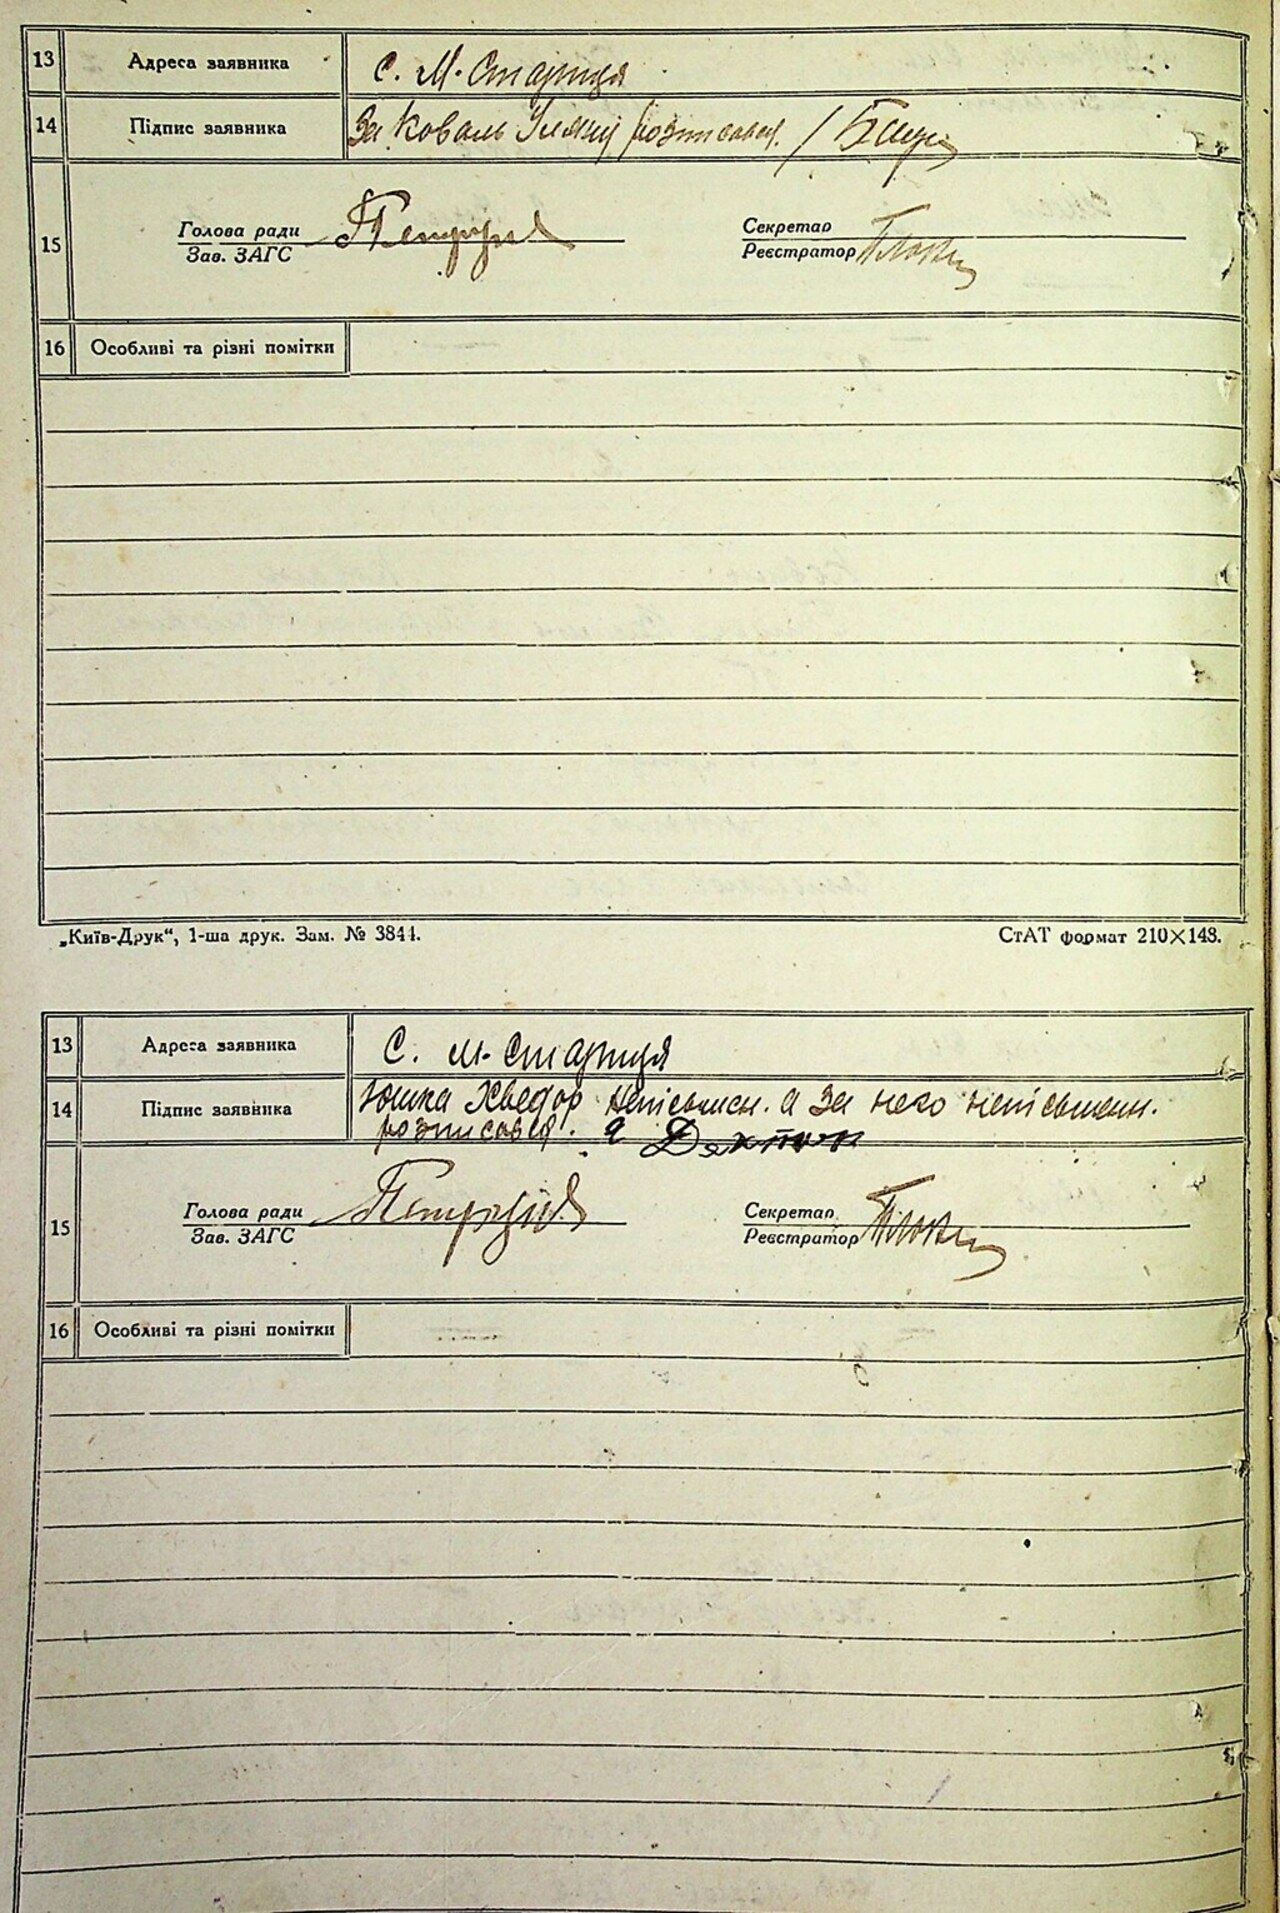 13 Адреса заявника С. М. Стариця
14 Підпис заявника За Коваль розписався /
15 Голова ради Секретар
Зав. ЗАГС Реєстратор
16 Особливі та різні помітки
„Київ-Друк“, 1-ша друк. Зам. № 3844. СтАТ формат 210×148.
13 Адреса заявника С. М. Стариця
14 Підпис заявника Юшка Хведор неписьмен. а за него неписьменн.
розписався. я
15 Голова ради Секретар
Зав. ЗАГС Реєстратор
16 Особливі та різні помітки